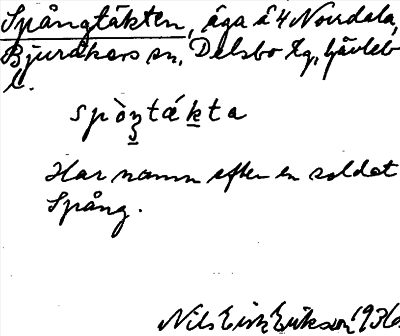 Spångtäkten, äga å 4 Norrdala,
Bjuråkers sn, Delsbo tg, Gävleb
l.
spòŋtǽkta
Har namn efter en soldat
Spång.
Nils Eric Erikson 1936